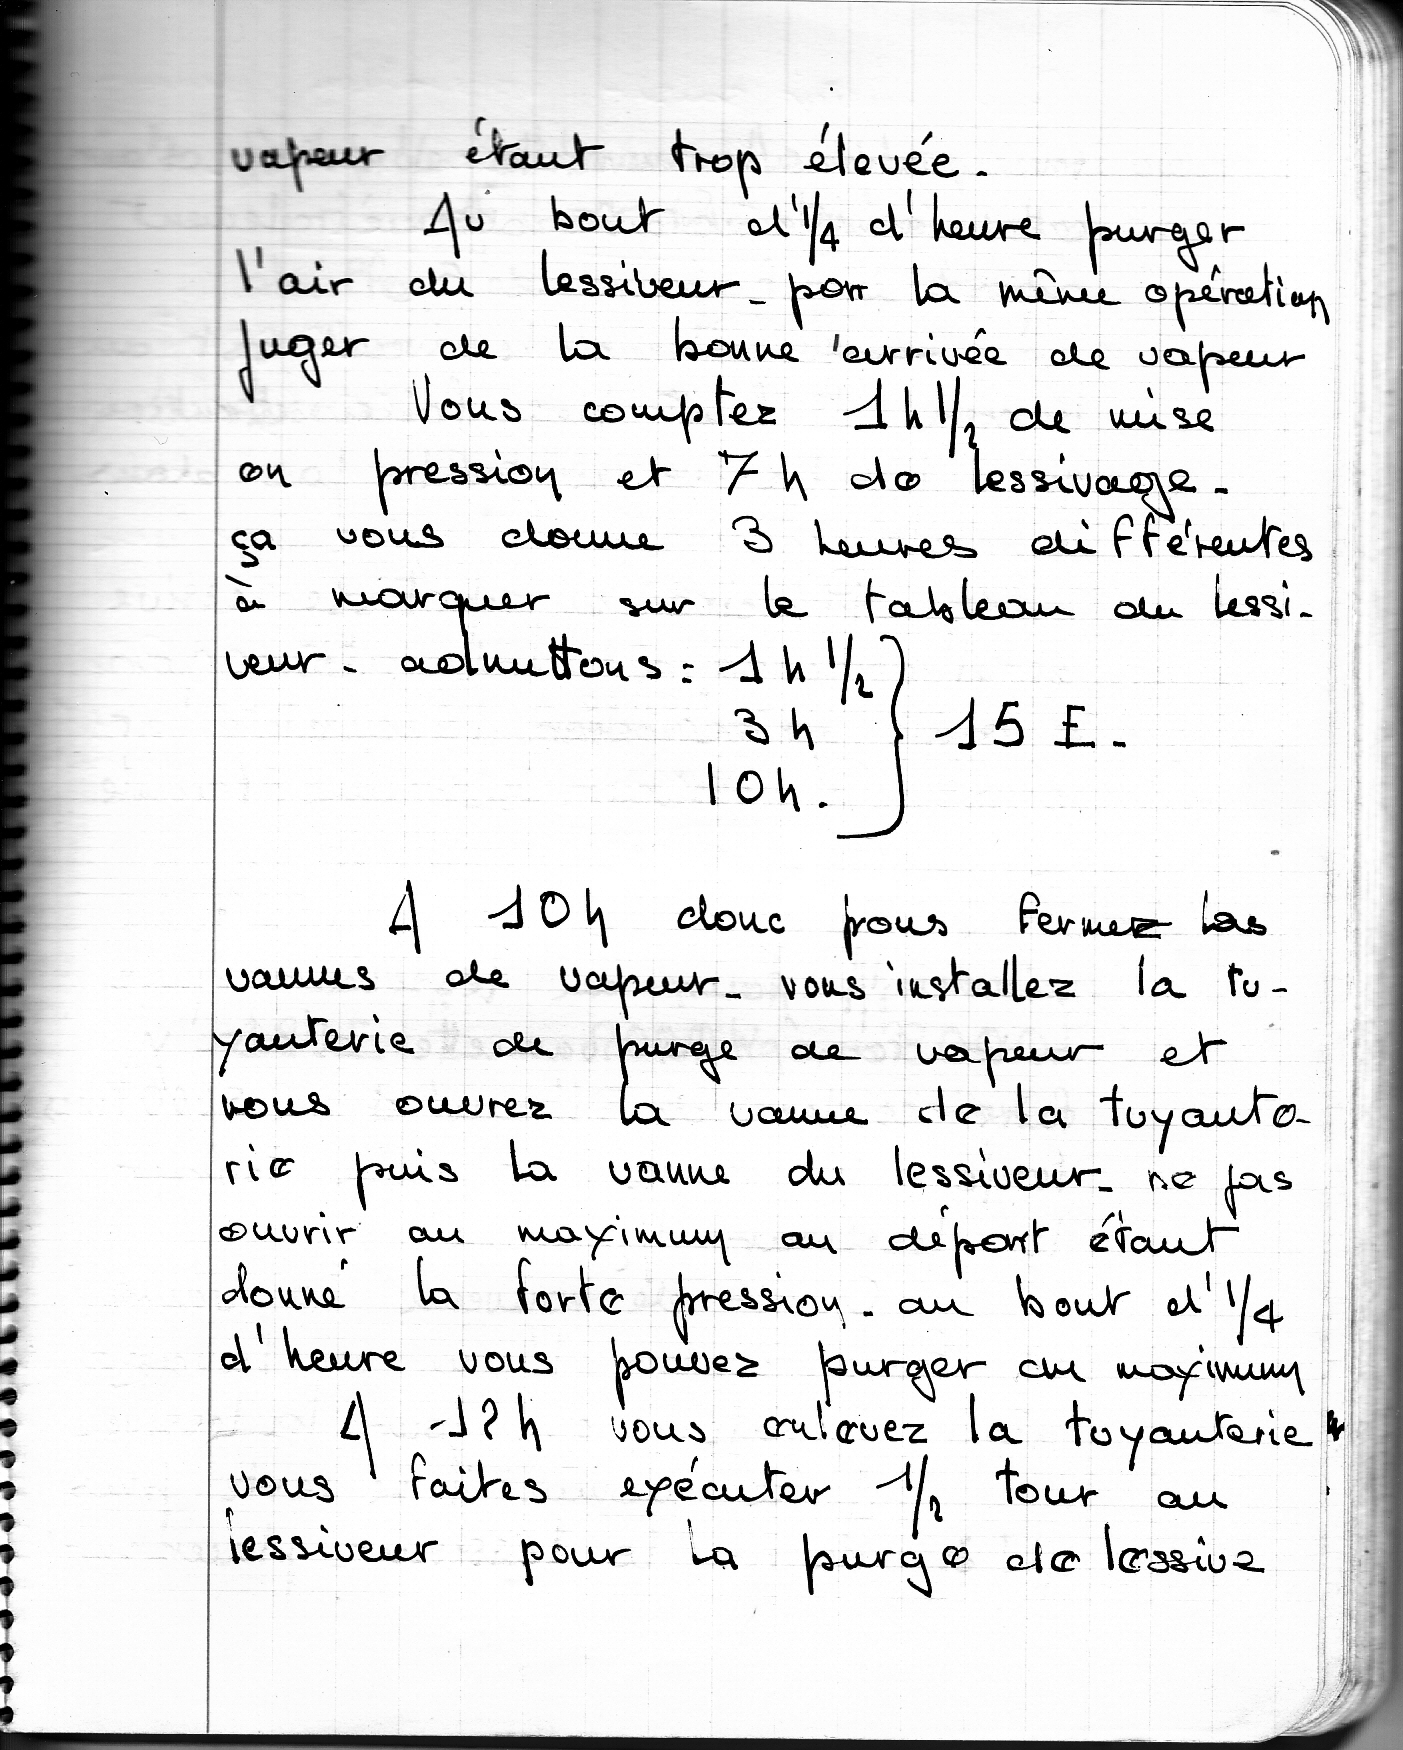 vapeur étant trop élevée.
Au bout d'1/4 d'heure purger
l'air du lessiveur - par la même opération
juger de la bonne arrivée de vapeur
Vous comptez 1h 1/2 de mise
en pression et 7h de lessivage.
ça vous donne 3 heures différentes
à marquer sur le tableau du lessi-
veur. admettons : 1h 1/2
3h } 15 E.
10h.
A 10h donc vous fermez les
vannes de vapeur. vous installez la tu-
yauterie de purge de vapeur et
vous ouvrez la vanne de la tuyaute-
rie puis la vanne du lessiveur. ne pas
ouvrir au maximum au départ étant
donné la forte pression. au bout d'1/4
d'heure vous pouvez purger au maximum
A 12h vous enlevez la tuyauterie
vous faites exécuter 1/2 tour au
lessiveur pour la purge de lessive